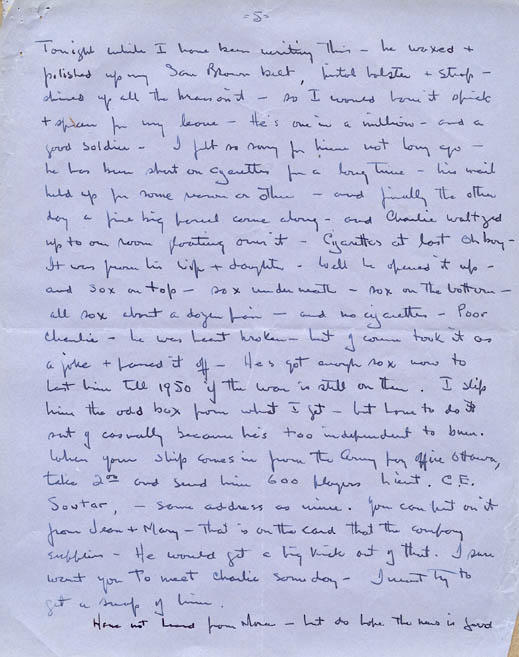 -5-
Tonight while I have been writing this - he waxed +
polished up my Sam Brown belt, pistol holster + strap -
shined up all the brass on it - so I would have it spick
+ span for my leave - He's one in a million - and a
good soldier - I felt so sorry for him not long ago -
he has been short on cigarettes for a long time - his mail
held up for some reason or other - and finally the other
day a fine big parcel came along - and Charlie waltzed
up to our room gloating over it - Cigarettes at last Oh boy -
It was from his wife + daughter - Well he opened it up -
and sox on top - sox underneath - sox on the bottom -
all sox about a dozen pair - and no cigarettes - Poor
Charlie - he was heart broken - but of course took it as
a joke + passed it off - He's got enough sox now to
last him till 1950 if the war is still on then. I slip
him the odd box from what I get - but have to do it
sort of casually because he's too independent to bum.
When your ship comes in from the Army pay office Ottawa,
take 2.00 and send him 600 players Lieut. C.E.
Soutar, - same address as mine. You can put on it
from Jean + Mary - that is on the card that the company
supplies - He would get a big kick out of that. I sure
want you to meet Charlie some day - I must try to
get a snap of him.
Have not heard from - but do hope the news is good